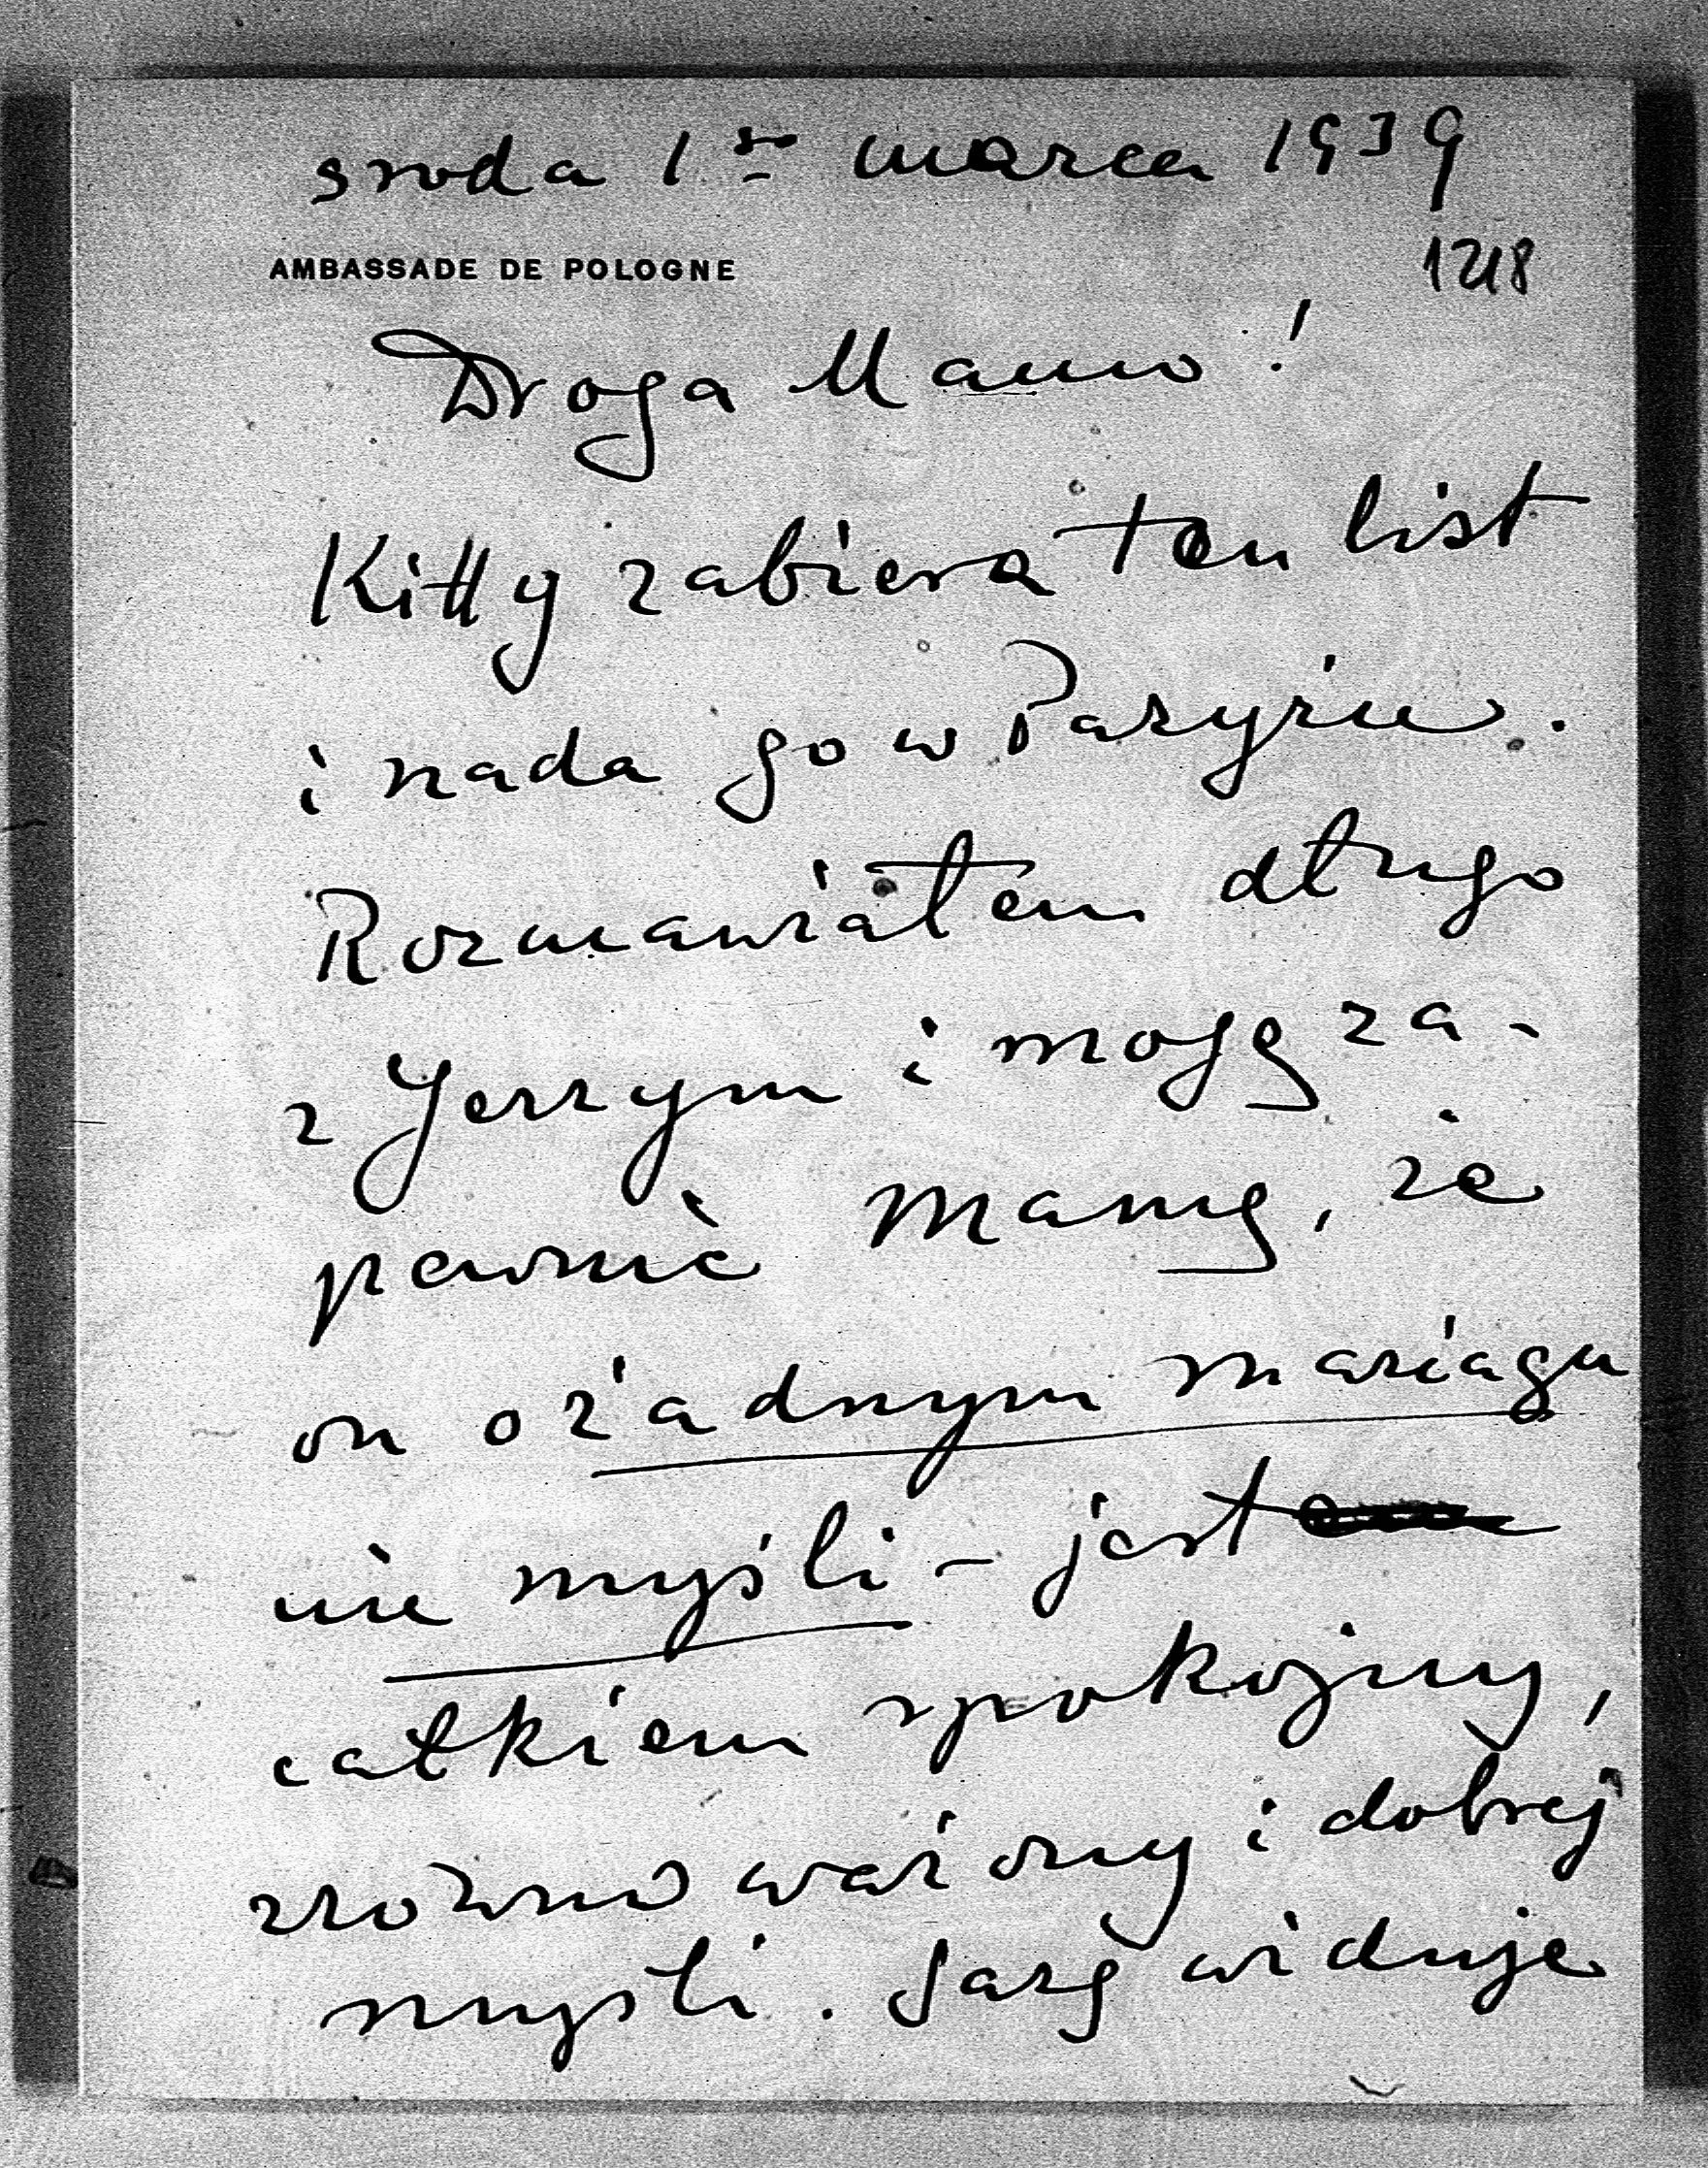 sroda 1go marca 1939
AMBASSADE DE POLOGNE
1218
Droga Mamo!
Kitty zabiera ten list
i nada go w Paryżu.
Rozmawiałem długo
z Jerzym i mogę za-
pewnić Mamę, że
on o żadnym mariagu
nie myśli - jest
całkiem spokojny,
zrównoważony i dobrej
myśli. Sarę widuje